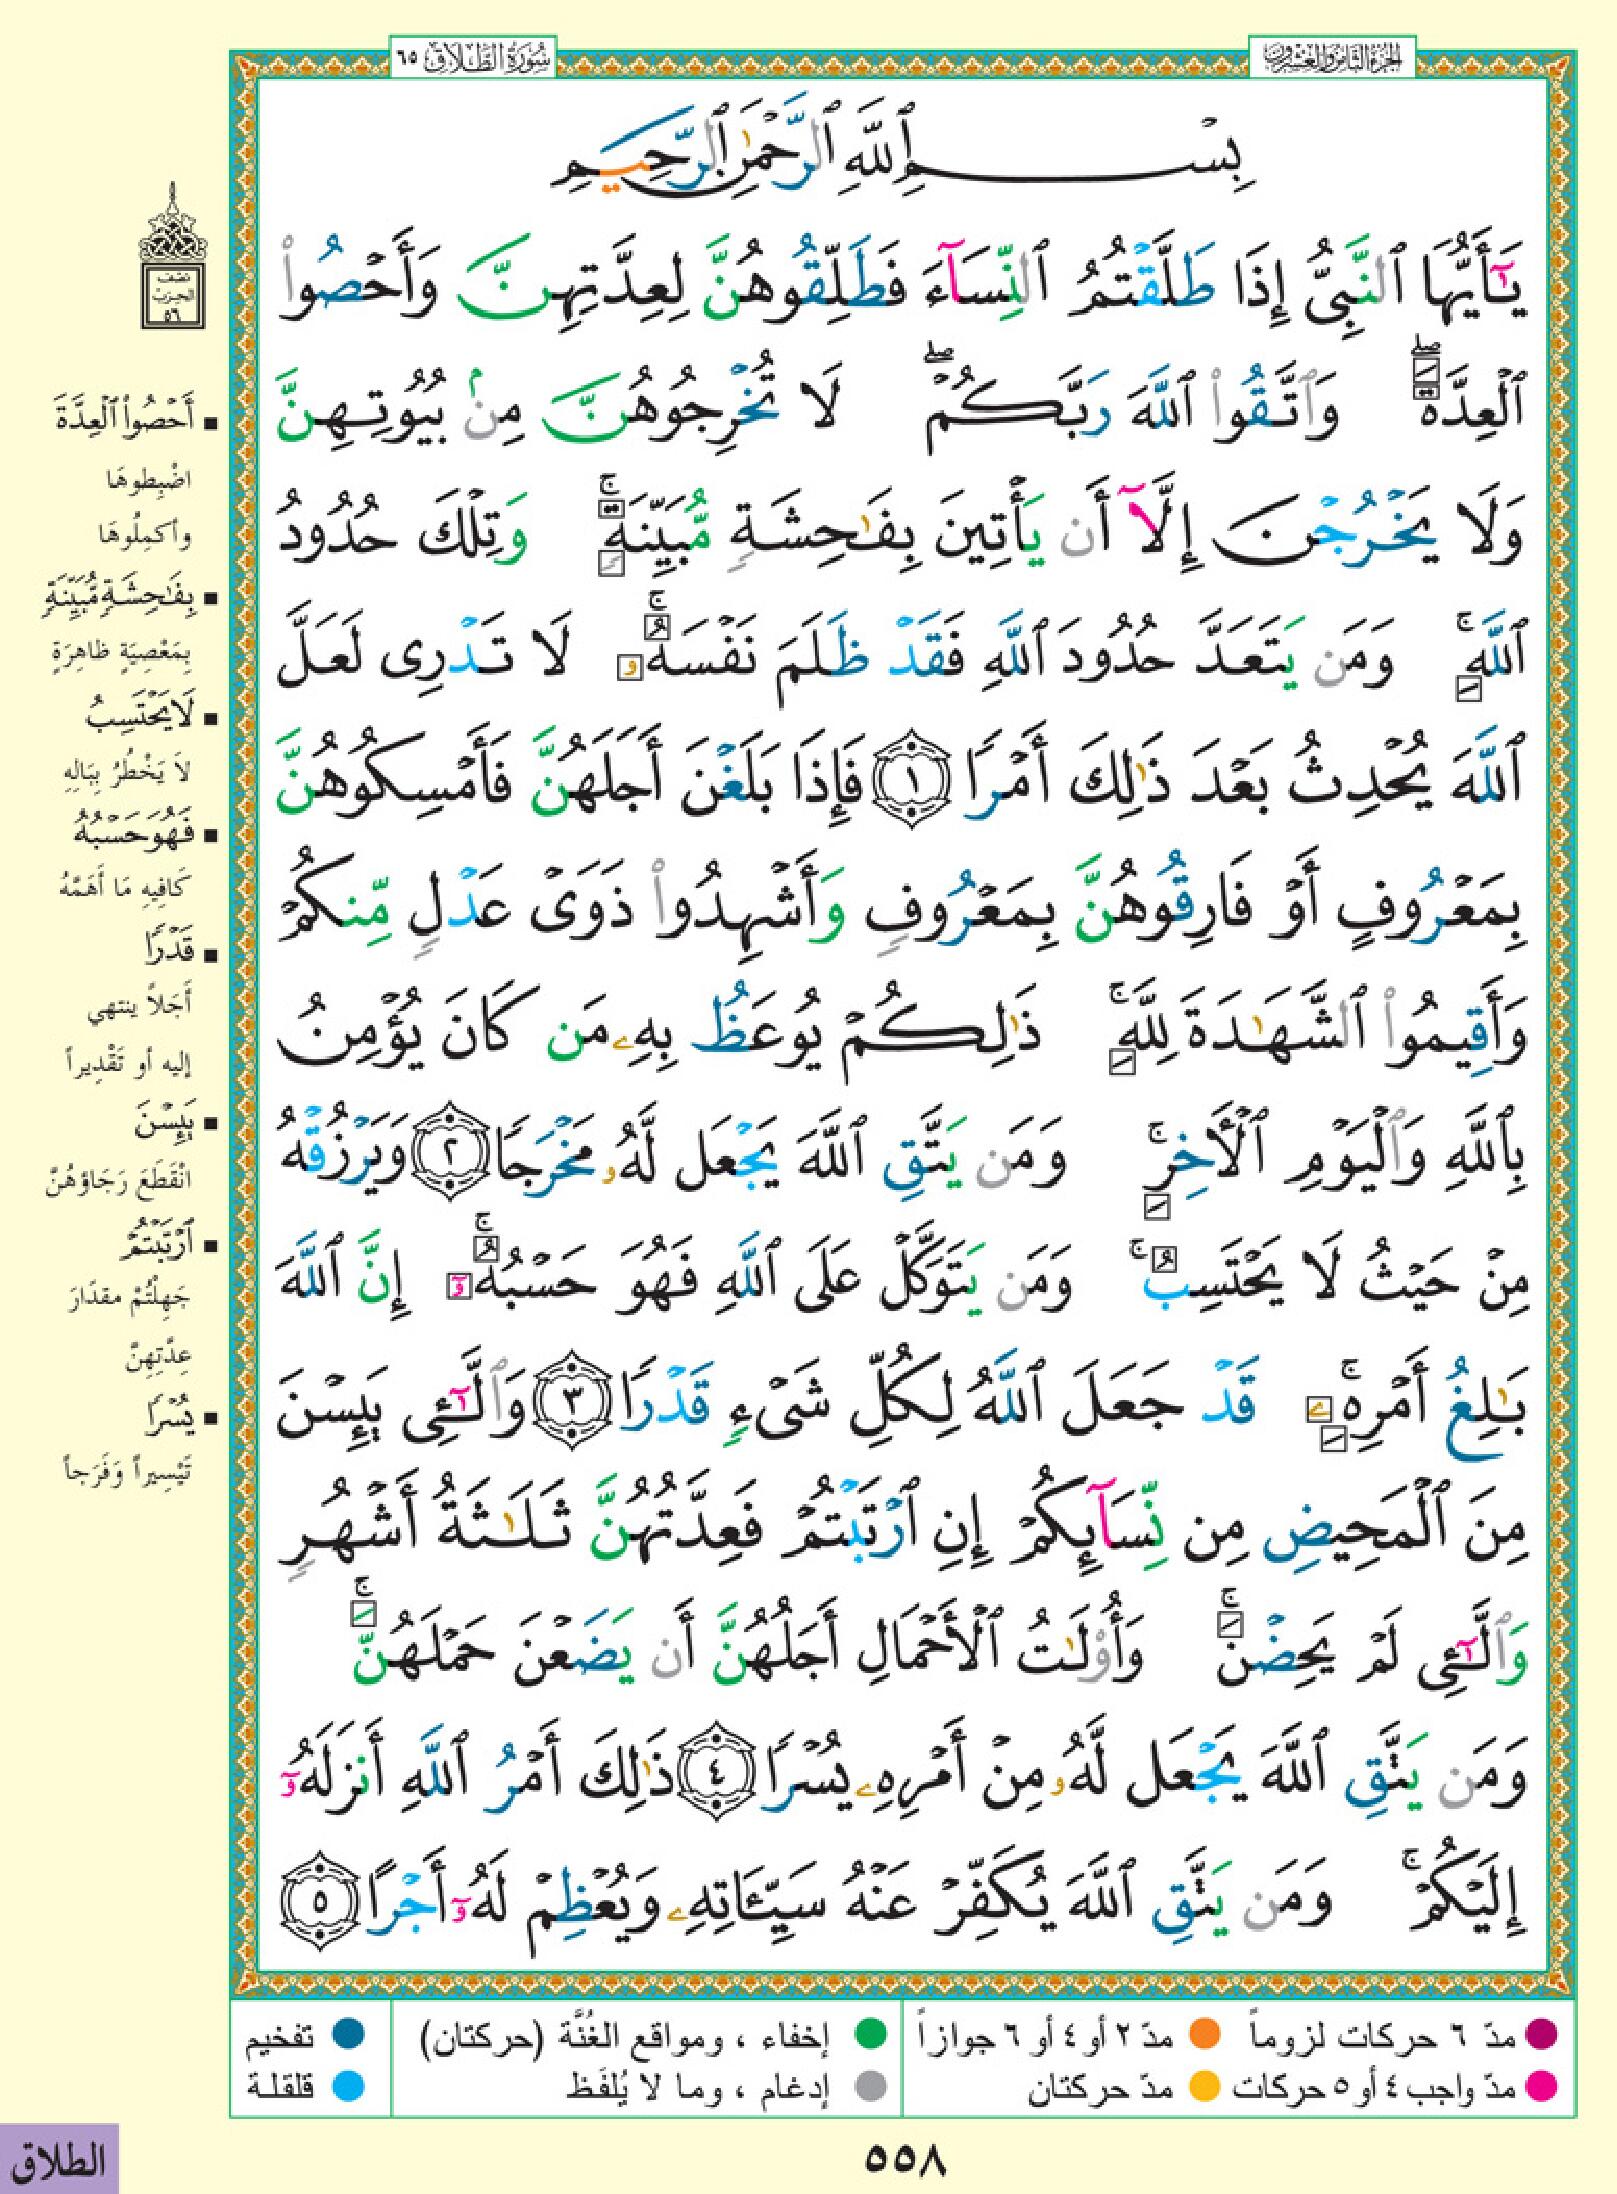 الجزء الثامن والعشرون
سُورَةُ الطَّلَاقِ ٦٥
بِسْمِ ٱللَّهِ ٱلرَّحْمَٰنِ ٱلرَّحِيمِ
يَٰٓأَيُّهَا ٱلنَّبِىُّ إِذَا طَلَّقْتُمُ ٱلنِّسَآءَ فَطَلِّقُوهُنَّ لِعِدَّتِهِنَّ وَأَحْصُوا۟
ٱلْعِدَّةَ ۖ وَٱتَّقُوا۟ ٱللَّهَ رَبَّكُمْ ۖ لَا تُخْرِجُوهُنَّ مِنۢ بُيُوتِهِنَّ
وَلَا يَخْرُجْنَ إِلَّآ أَن يَأْتِينَ بِفَٰحِشَةٍ مُّبَيِّنَةٍ ۚ وَتِلْكَ حُدُودُ
ٱللَّهِ ۚ وَمَن يَتَعَدَّ حُدُودَ ٱللَّهِ فَقَدْ ظَلَمَ نَفْسَهُۥ ۚ لَا تَدْرِى لَعَلَّ
ٱللَّهَ يُحْدِثُ بَعْدَ ذَٰلِكَ أَمْرًا ١ فَإِذَا بَلَغْنَ أَجَلَهُنَّ فَأَمْسِكُوهُنَّ
بِمَعْرُوفٍ أَوْ فَارِقُوهُنَّ بِمَعْرُوفٍ وَأَشْهِدُوا۟ ذَوَىْ عَدْلٍ مِّنكُمْ
وَأَقِيمُوا۟ ٱلشَّهَٰدَةَ لِلَّهِ ۚ ذَٰلِكُمْ يُوعَظُ بِهِۦ مَن كَانَ يُؤْمِنُ
بِٱللَّهِ وَٱلْيَوْمِ ٱلْأَخِرِ ۚ وَمَن يَتَّقِ ٱللَّهَ يَجْعَل لَّهُۥ مَخْرَجًا ٢ وَيَرْزُقْهُ
مِنْ حَيْثُ لَا يَحْتَسِبُ ۚ وَمَن يَتَوَكَّلْ عَلَى ٱللَّهِ فَهُوَ حَسْبُهُۥٓ ۚ إِنَّ ٱللَّهَ
بَٰلِغُ أَمْرِهِۦ ۚ قَدْ جَعَلَ ٱللَّهُ لِكُلِّ شَىْءٍ قَدْرًا ٣ وَٱلَّٰٓـِٔى يَئِسْنَ
مِنَ ٱلْمَحِيضِ مِن نِّسَآئِكُمْ إِنِ ٱرْتَبْتُمْ فَعِدَّتُهُنَّ ثَلَٰثَةُ أَشْهُرٍ
وَٱلَّٰٓـِٔى لَمْ يَحِضْنَ ۚ وَأُو۟لَٰتُ ٱلْأَحْمَالِ أَجَلُهُنَّ أَن يَضَعْنَ حَمْلَهُنَّ ۚ
وَمَن يَتَّقِ ٱللَّهَ يَجْعَل لَّهُۥ مِنْ أَمْرِهِۦ يُسْرًا ٤ ذَٰلِكَ أَمْرُ ٱللَّهِ أَنزَلَهُۥٓ
إِلَيْكُمْ ۚ وَمَن يَتَّقِ ٱللَّهَ يُكَفِّرْ عَنْهُ سَيِّـَٔاتِهِۦ وَيُعْظِمْ لَهُۥٓ أَجْرًا ٥
نصف
الحزب
٥٦
■ أَحْصُوا۟ ٱلْعِدَّةَ
اضْبِطوهَا
وأكمِلُوهَا
■ بِفَٰحِشَةٍ مُّبَيِّنَةٍ
بِمَعْصِيَةٍ ظاهِرَةٍ
■ لَا يَحْتَسِبُ
لاَ يَخْطُرُ بِبَالِهِ
■ فَهُوَ حَسْبُهُ
كَافِيهِ مَا أَهَمَّهُ
■ قَدْرًا
أَجَلاً ينتهي
إليه أو تَقْدِيراً
■ يَئِسْنَ
انْقَطَعَ رَجَاؤهُنَّ
■ ٱرْتَبْتُمْ
جَهِلْتُمْ مقدَارَ
عِدَّتِهِنَّ
■ يُسْرًا
تَيْسِيراً وَفَرَجاً
مدّ ٦ حركات لزوماً
مدّ ٢ أو ٤ أو ٦ جوازاً
إخفاء ، ومواقع الغُنَّة (حركتان)
تفخيم
مدّ واجب ٤ أو ٥ حركات
مدّ حركتان
إدغام ، وما لا يُلفَظ
قلقلة
٥٥٨
الطلاق